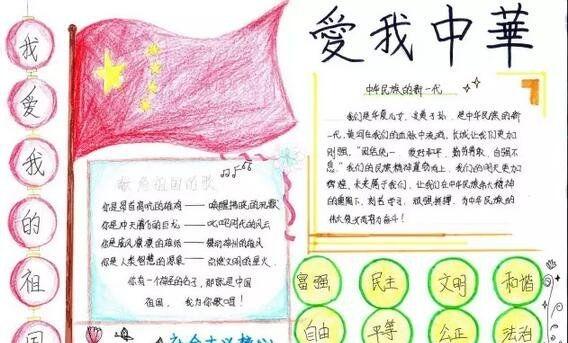 愛我中華
我爱我的祖国
献给祖国的歌
你是昂首高吭的雄鸡——唤醒拂晓的沉默
你是冲天腾飞的巨龙——叱咤时代的风云
你是威风凛凛的雄狮——舞动神州的雄风
你是人类智慧的源泉——点燃文明的星火
你有一个神圣的名字,那就是中国
祖国, 我为你歌唱!
中华民族的新一代
我们是华夏儿女,炎黄子孙,是中华民族的新
一代,黄河在我们的血脉中流淌,长城让我们更加
刚强。“团结统一 爱好和平,勤劳勇敢,自强不
息”我们的民族精神,我们的明天更加
辉煌,未来属于我们,让我们在中华民族伟大精神
的旗帜下,刻苦学习,顽强拼搏,为中华民族的
伟大复兴而努力奋斗!
富强 民主 文明 和谐
自由 平等 公正 法治